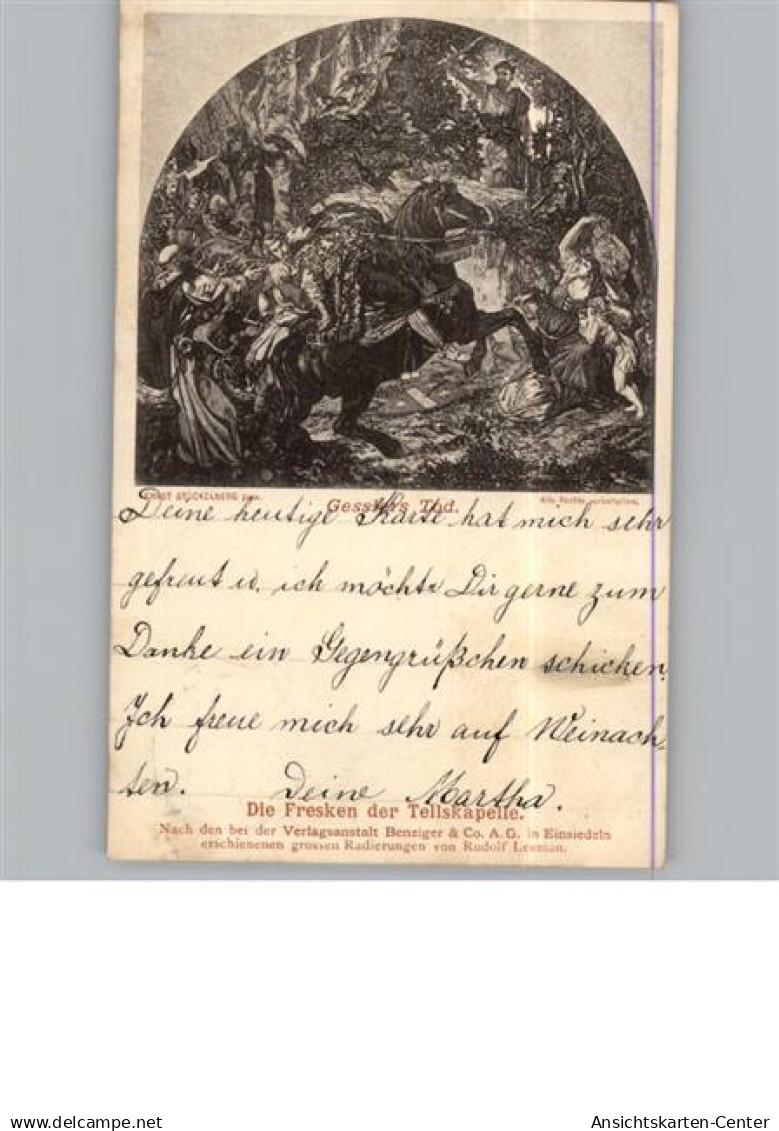 ERNST STÜCKELBERG pinx.
Gesslers Tod.
Alle Rechte vorbehalten.
Deine heutige Karte hat mich sehr
gefreut u. ich möchte Dir gerne zum
Danke ein Gegengrüßchen schicken.
Ich freue mich sehr auf Weinach-
ten. Deine Martha.
Die Fresken der Tellskapelle.
Nach den bei der Verlagsanstalt Benziger & Co. A. G. in Einsiedeln
erschienenen grossen Radierungen von Rudolf Leeman.
delcampe.net
Ansichtskarten-Center